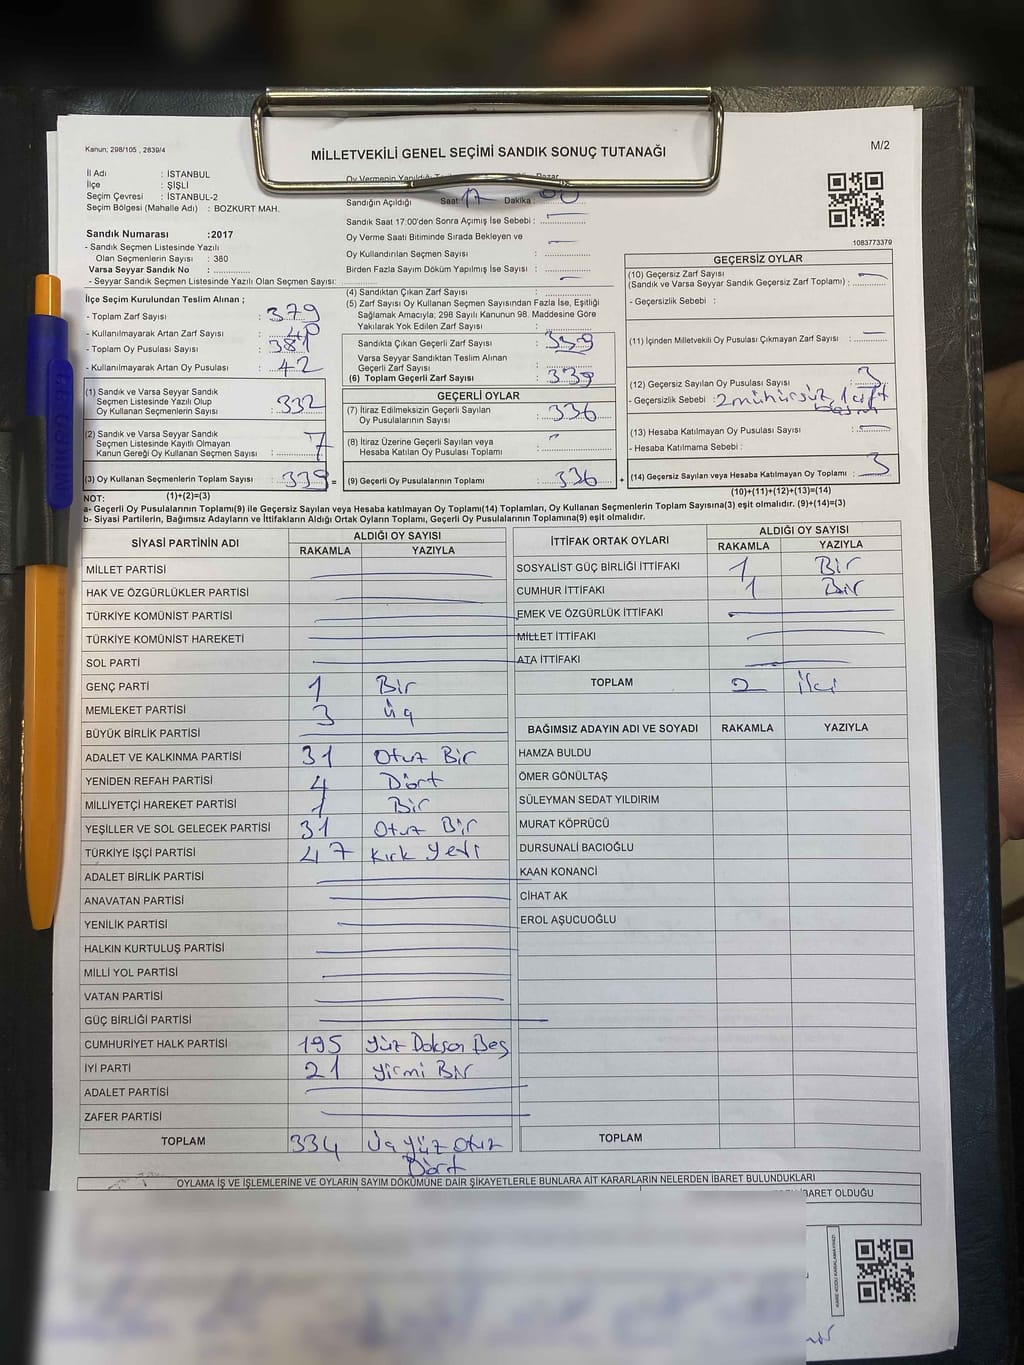 Kanun; 298/105 , 2839/4
M/2
MİLLETVEKİLİ GENEL SEÇİMİ SANDIK SONUÇ TUTANAĞI
İl Adı : İSTANBUL
İlçe : ŞİŞLİ
Seçim Çevresi : İSTANBUL-2
Seçim Bölgesi (Mahalle Adı) : BOZKURT MAH.
Sandık Numarası :2017
- Sandık Seçmen Listesinde Yazılı
Olan Seçmenlerin Sayısı : 380
Varsa Seyyar Sandık No : ..............
- Seyyar Sandık Seçmen Listesinde Yazılı Olan Seçmen Sayısı: ..............
İlçe Seçim Kurulundan Teslim Alınan ;
- Toplam Zarf Sayısı : 379
- Kullanılmayarak Artan Zarf Sayısı : 40
- Toplam Oy Pusulası Sayısı : 381
- Kullanılmayarak Artan Oy Pusulası : 42
(1) Sandık ve Varsa Seyyar Sandık
Seçmen Listesinde Yazılı Olup
Oy Kullanan Seçmenlerin Sayısı : 332
(2) Sandık ve Varsa Seyyar Sandık
Seçmen Listesinde Kayıtlı Olmayan
Kanun Gereği Oy Kullanan Seçmen Sayısı : 7
(3) Oy Kullanan Seçmenlerin Toplam Sayısı : 339 =
Sandığın Açıldığı Saat: 17 Dakika : 00
Sandık Saat 17:00'den Sonra Açımış İse Sebebi : ..............
Oy Verme Saati Bitiminde Sırada Bekleyen ve
Oy Kullandırılan Seçmen Sayısı : ..............
Birden Fazla Sayım Döküm Yapılmış İse Sayısı : ..............
(4) Sandıktan Çıkan Zarf Sayısı : ..............
(5) Zarf Sayısı Oy Kullanan Seçmen Sayısından Fazla İse, Eşitliği
Sağlamak Amacıyla; 298 Sayılı Kanunun 98. Maddesine Göre
Yakılarak Yok Edilen Zarf Sayısı : ..............
Sandıkta Çıkan Geçerli Zarf Sayısı : 339
Varsa Seyyar Sandıktan Teslim Alınan
Geçerli Zarf Sayısı : ..............
(6) Toplam Geçerli Zarf Sayısı : 339
GEÇERLİ OYLAR
(7) İtiraz Edilmeksizin Geçerli Sayılan
Oy Pusulalarının Sayısı : 336
(8) İtiraz Üzerine Geçerli Sayılan veya
Hesaba Katılan Oy Pusulası Toplamı : ..............
(9) Geçerli Oy Pusulalarının Toplamı : 336 +
1083773379
GEÇERSİZ OYLAR
(10) Geçersiz Zarf Sayısı
(Sandık ve Varsa Seyyar Sandık Geçersiz Zarf Toplamı) : ..............
- Geçersizlik Sebebi :
(11) İçinden Milletvekili Oy Pusulası Çıkmayan Zarf Sayısı: ..............
(12) Geçersiz Sayılan Oy Pusulası Sayısı : 3
- Geçersizlik Sebebi : 2 mühürsüz 1 çift
(13) Hesaba Katılmayan Oy Pusulası Sayısı : ..............
- Hesaba Katılmama Sebebi :
(14) Geçersiz Sayılan veya Hesaba Katılmayan Oy Toplamı : 3
NOT: (1)+(2)=(3)
(10)+(11)+(12)+(13)=(14)
a- Geçerli Oy Pusulalarının Toplamı(9) ile Geçersiz Sayılan veya Hesaba katılmayan Oy Toplamı(14) Toplamları, Oy Kullanan Seçmenlerin Toplam Sayısına(3) eşit olmalıdır. (9)+(14)=(3)
b- Siyasi Partilerin, Bağımsız Adayların ve İttifakların Aldığı Ortak Oyların Toplamı, Geçerli Oy Pusulalarının Toplamına(9) eşit olmalıdır.
SİYASİ PARTİNİN ADI
ALDIĞI OY SAYISI
RAKAMLA YAZIYLA
MİLLET PARTİSİ
HAK VE ÖZGÜRLÜKLER PARTİSİ
TÜRKİYE KOMÜNİST PARTİSİ
TÜRKİYE KOMÜNİST HAREKETİ
SOL PARTİ
GENÇ PARTİ 1 Bir
MEMLEKET PARTİSİ 3 Üç
BÜYÜK BİRLİK PARTİSİ
ADALET VE KALKINMA PARTİSİ 31 Otuz Bir
YENİDEN REFAH PARTİSİ 4 Dört
MİLLİYETÇİ HAREKET PARTİSİ 1 Bir
YEŞİLLER VE SOL GELECEK PARTİSİ 31 Otuz Bir
TÜRKİYE İŞÇİ PARTİSİ 47 Kırk Yedi
ADALET BİRLİK PARTİSİ
ANAVATAN PARTİSİ
YENİLİK PARTİSİ
HALKIN KURTULUŞ PARTİSİ
MİLLİ YOL PARTİSİ
VATAN PARTİSİ
GÜÇ BİRLİĞİ PARTİSİ
CUMHURİYET HALK PARTİSİ 195 Yüz Doksan Beş
İYİ PARTİ 21 Yirmi Bir
ADALET PARTİSİ
ZAFER PARTİSİ
TOPLAM 334 Üç Yüz Otuz
Dört
İTTİFAK ORTAK OYLARI
ALDIĞI OY SAYISI
RAKAMLA YAZIYLA
SOSYALİST GÜÇ BİRLİĞİ İTTİFAKI 1 Bir
CUMHUR İTTİFAKI 1 Bir
EMEK VE ÖZGÜRLÜK İTTİFAKI
MİLLET İTTİFAKI
ATA İTTİFAKI
TOPLAM 2 İki
BAĞIMSIZ ADAYIN ADI VE SOYADI RAKAMLA YAZIYLA
HAMZA BULDU
ÖMER GÖNÜLTAŞ
SÜLEYMAN SEDAT YILDIRIM
MURAT KÖPRÜCÜ
DURSUNALİ BACIOĞLU
KAAN KONANCİ
CİHAT AK
EROL AŞUCUOĞLU
TOPLAM
OYLAMA İŞ VE İŞLEMLERİNE VE OYLARIN SAYIM DÖKÜMÜNE DAİR ŞİKAYETLERLE BUNLARA AİT KARARLARIN NELERDEN İBARET BULUNDUKLARI
İBARET OLDUĞU